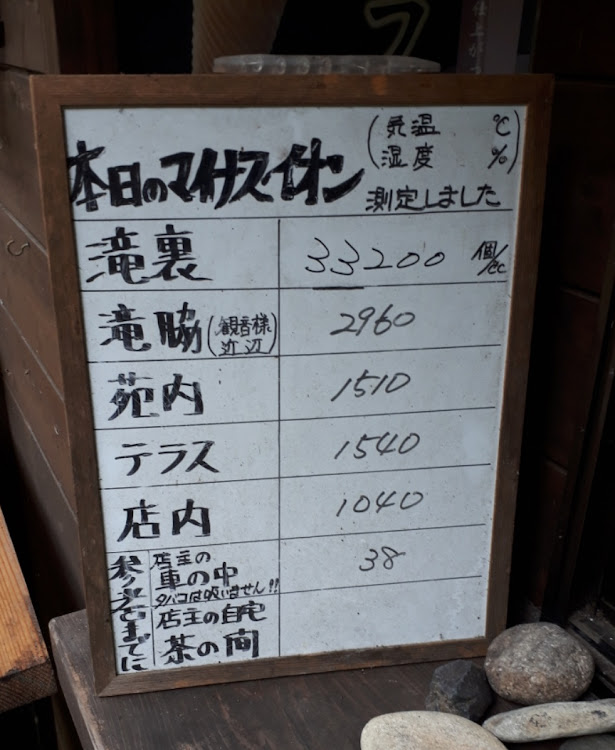 本日のマイナスイオン
(気温 ℃
湿度 %)
測定しました
滝裏 33200 個/cc
滝脇(観音様近辺) 2960
苑内 1510
テラス 1540
店内 1040
参考までに
店主の
車の中 38
タバコは吸いません!!
店主の自宅
茶の間